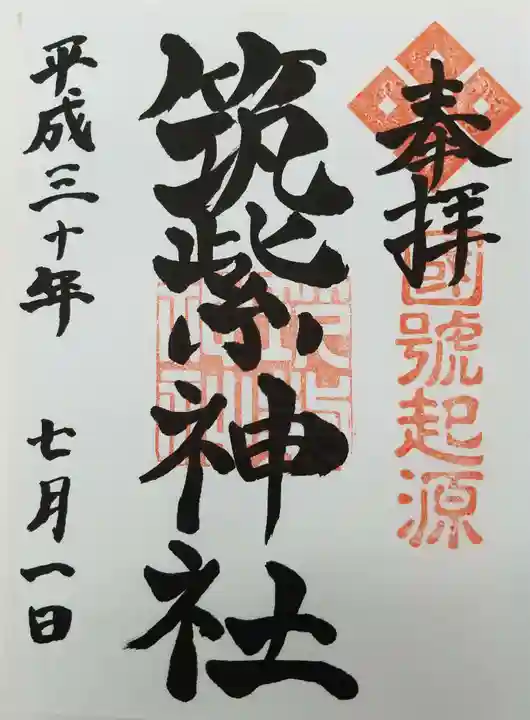 奉拝
國號起源
筑紫神社
筑紫神社
平成三十年 七月一日